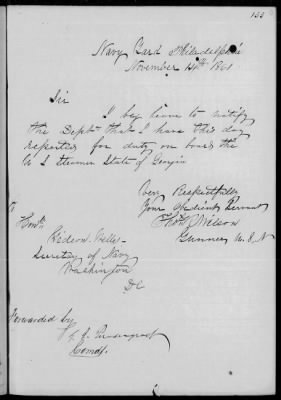 133
Navy Yard Philadelphia
November 14th 1861
Sir
I beg leave to notify
the Dept that I have this day
reported for duty on board the
U S Steamer State of Georgia
Very Respectfully
Your Obedient Servant
Wilson
Gunner U.S.N
To
Honble
Gideon Welles
Secretary of Navy
Washington
DC
Forwarded by
G. J. Pendergrast
Comdt.